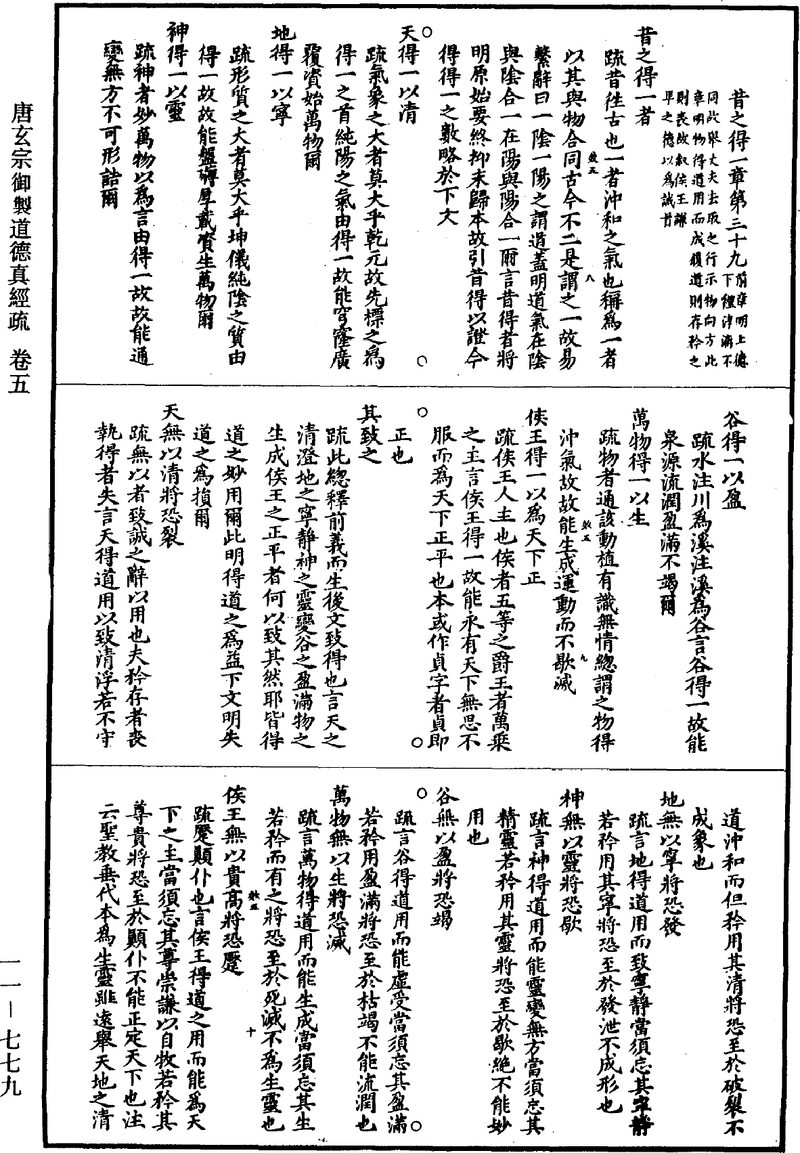 唐玄宗御製道德真經疏 卷五
一一—七七九
昔之得一章第三十九前章明上德
下德淳漓不
同故舉丈夫去取之行示物向方此
章明物得道用而成損道則存矜之
則喪故叙侯王謙
卑之德以爲誡首
昔之得一者
疏昔往古也一者沖和之氣也稱爲一者
以其與物合同古今不二是謂之一故易
繫辭曰一陰一陽之謂道蓋明道氣在陰
與陰合一在陽與陽合一爾言昔得者將
明原始要終抑末歸本故引昔得以證今
得得一之數略於下文
天得一以清
疏氣象之大者莫大乎乾元故先標之爲
得一之首純陽之氣由得一故能穹窿廣
覆資始萬物爾
地得一以寧
疏形質之大者莫大乎坤儀純陰之質由
得一故故能盤礴厚載資生萬物爾
神得一以靈
疏神者妙萬物以爲言由得一故故能通
變無方不可形詰爾
谷得一以盈
疏水注川爲溪注溪爲谷言谷得一故能
泉源流潤盈滿不竭爾
萬物得一以生
疏物者通該動植有識無情緫謂之物得
沖氣故故能生成運動而不歇滅
侯王得一以爲天下正
疏侯王人主也侯者五等之爵王者萬乘
之主言侯王得一故能永有天下無思不
服而爲天下正平也本或作貞字者貞即
正也
其致之
疏此緫釋前義而生後文致得也言天之
清澄地之寧靜神之靈變谷之盈滿物之
生成侯王之正平者何以致其然耶皆得
道之妙用爾此明得道之爲益下文明失
道之爲損爾
天無以清將恐裂
疏無以者致誡之辭以用也夫矜存者喪
執得者失言天得道用以致清浮若不守
道沖和而但矜用其清將恐至於破裂不
成象也
地無以寧將恐發
疏言地得道用而致寧靜當須忘其寧靜
若矜用其寧將恐至於發泄不成形也
神無以靈將恐歇
疏言神得道用而能靈變無方當須忘其
精靈若矜用其靈將恐至於歇絕不能妙
用也
谷無以盈將恐竭
疏言谷得道用而能虛受當須忘其盈滿
若矜用盈滿將恐至於枯竭不能流潤也
萬物無以生將恐滅
疏言萬物得道用而能生成當須忘其生
若矜而有之將恐至於死滅不爲生靈也
侯王無以貴高將恐蹷
疏蹷顛仆也言侯王得道之用而能爲天
下之主當須忘其尊崇謙以自牧若矜其
尊貴將恐至於顛仆不能正定天下也注
云聖教垂代本爲生靈雖遠舉天地之清